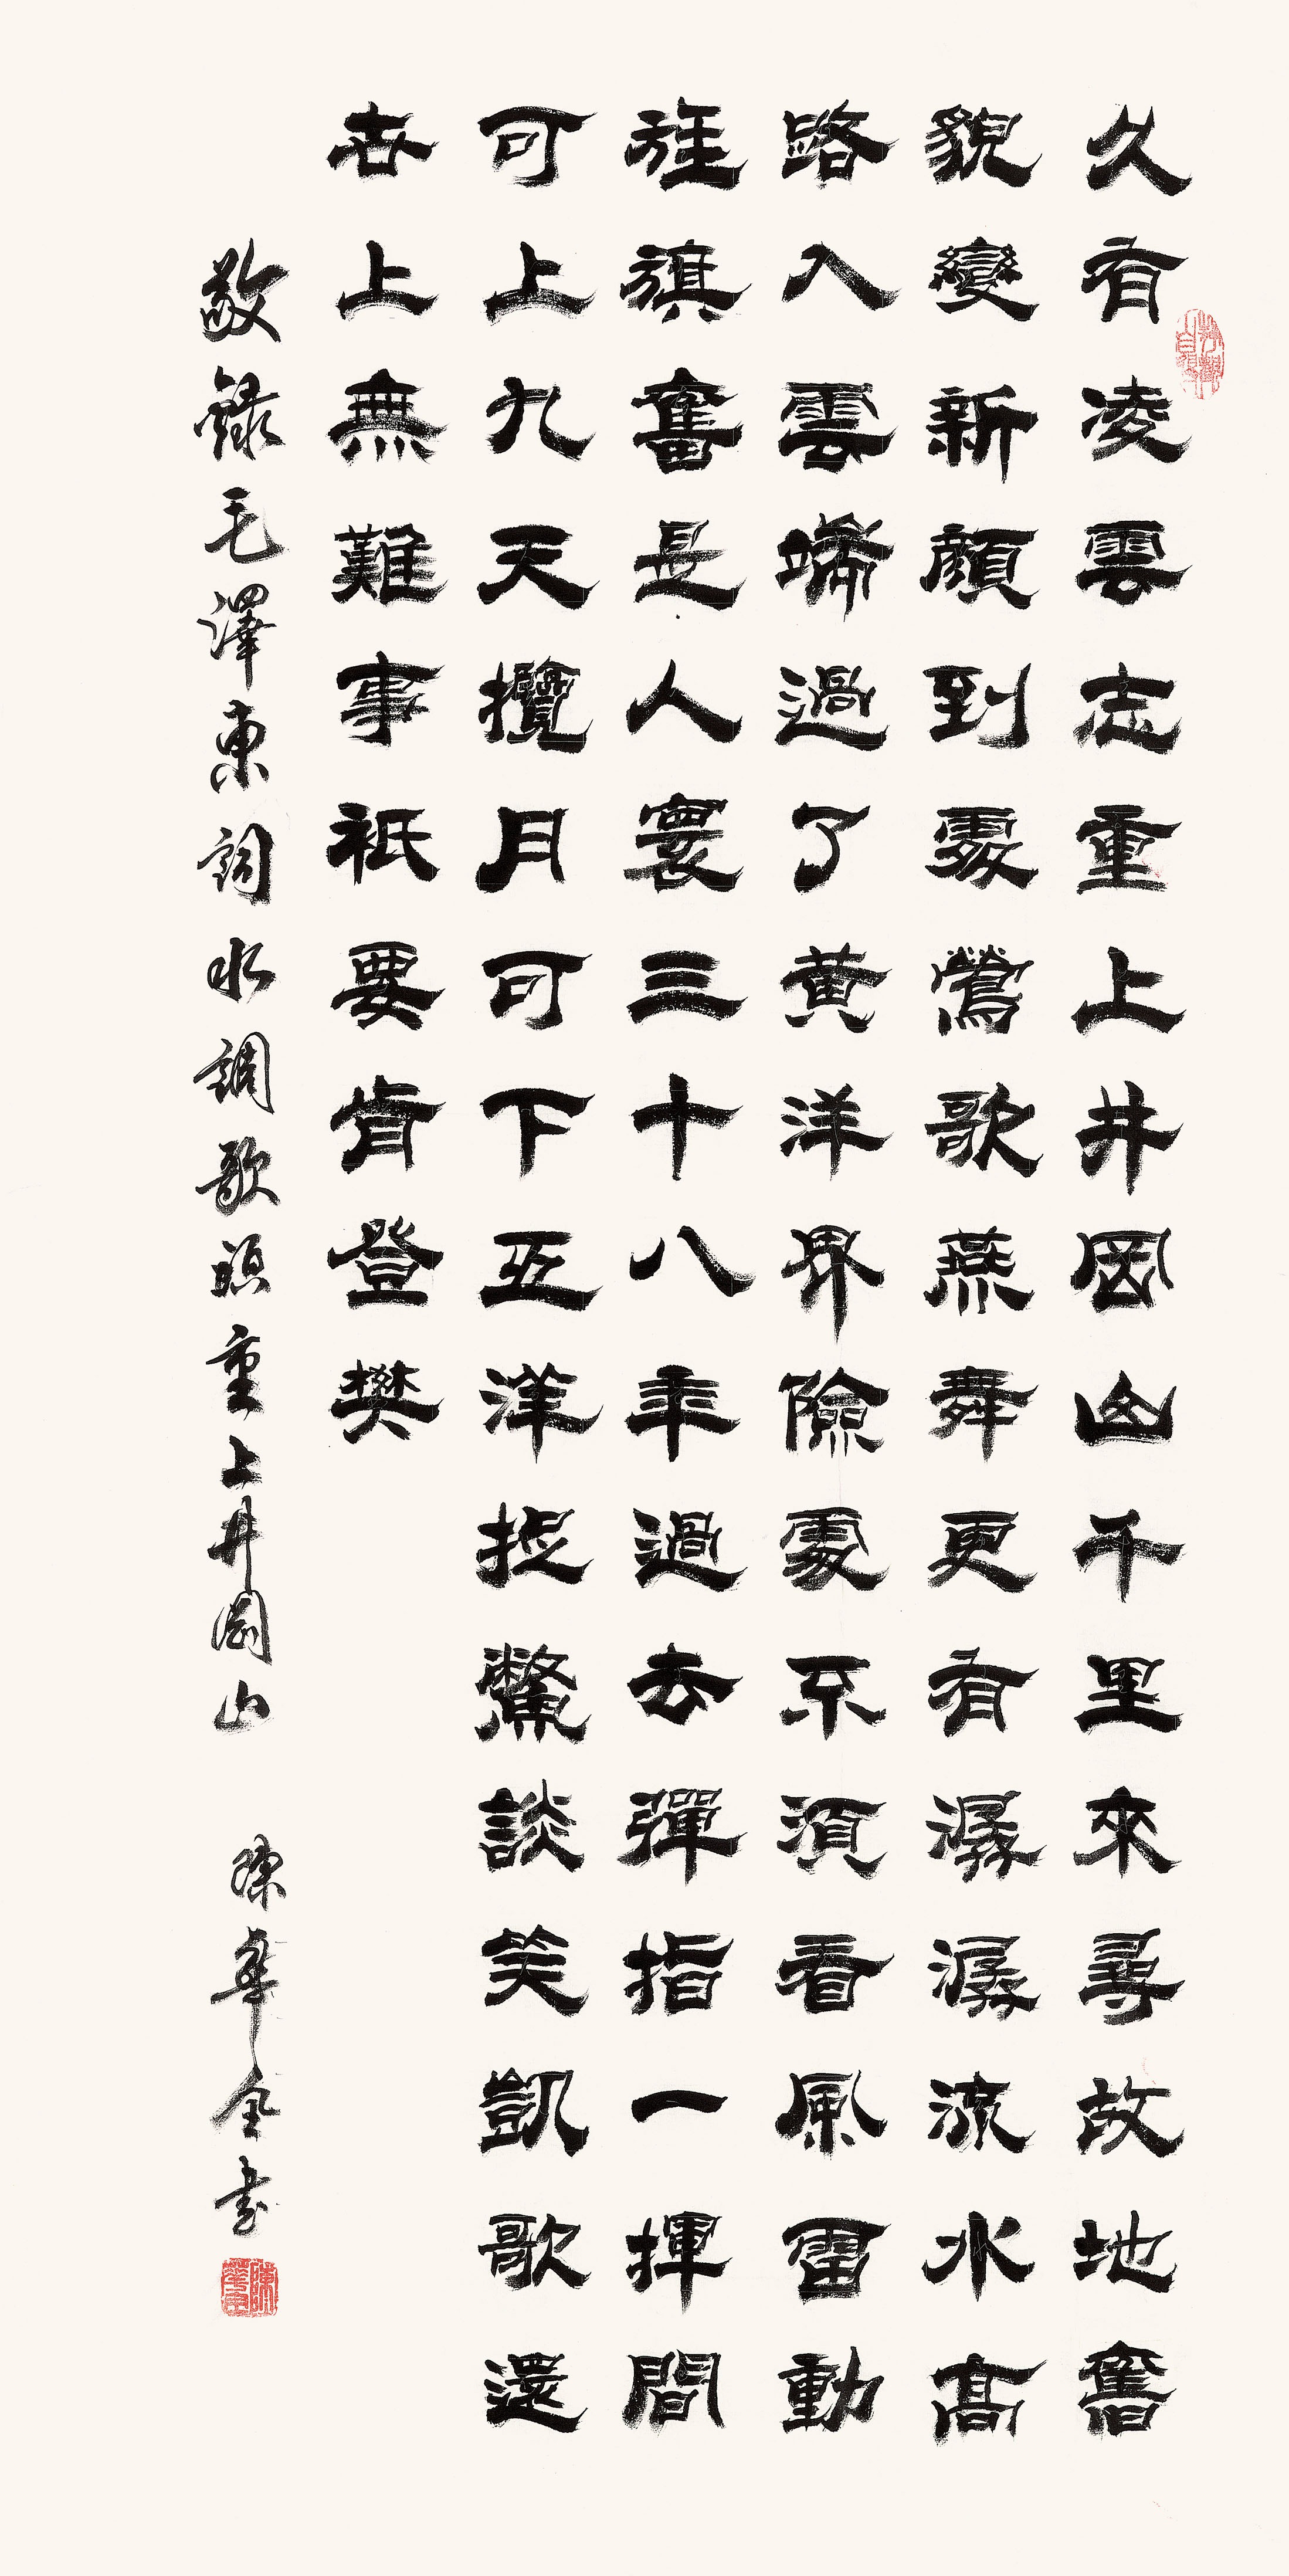 久有凌雲志重上井岡山千里來尋故地舊
貌變新顏到處鶯歌燕舞更有潺潺流水高
路入雲端過了黃洋界險處不須看風雷動
旌旗奮是人寰三十八年過去彈指一揮間
可上九天攬月可下五洋捉鱉談笑凱歌還
世上無難事祇要肯登樊
敬錄毛澤東詞水調歌頭重上井岡山 陳華金書